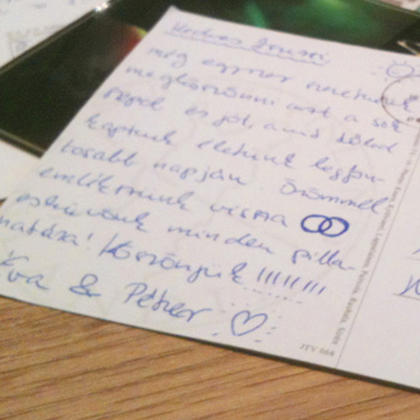 Kedves Zsuzsi
még egyszer szeretnénk
megköszönni azt a sok
szépet és jót, amit tőled
kaptunk életünk legfon-
tosabb napján. Örömmel
emlékezünk vissza
esküvőnk minden pilla-
natára! Köszönjük !!!!!!!!
Éva & Péter ♡
JTV 064